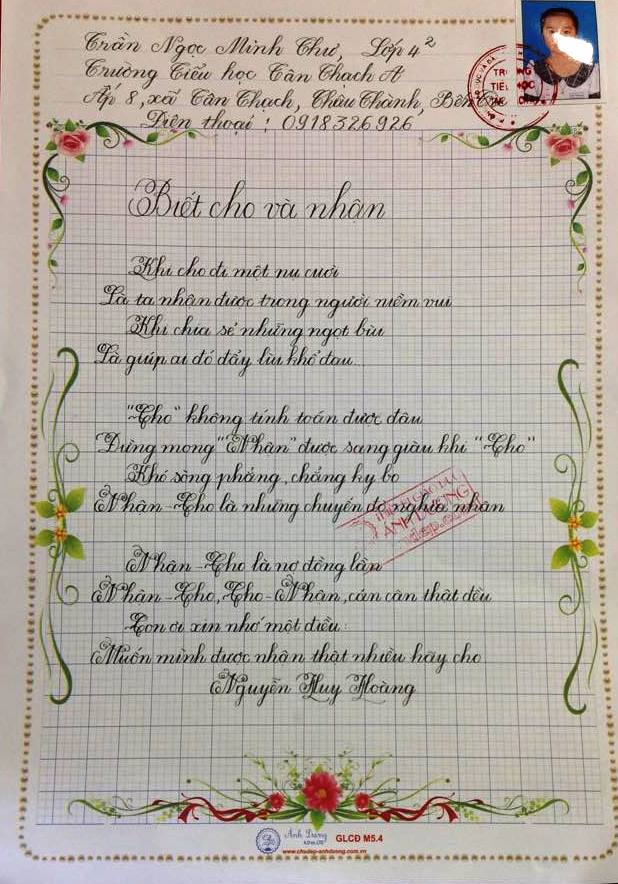 Trần Ngọc Minh Thư, Lớp 4²
Trường Tiểu học Tân Thạch A
Ấp 8, xã Tân Thạch, Châu Thành, Bến Tre
Điện thoại : 0918326926
Biết cho và nhận
Khi cho đi một nụ cười
Là ta nhận được trong người niềm vui
Khi chia sẻ những ngọt bùi
Là giúp ai đó đẩy lùi khổ đau.
"Cho" không tính toán được đâu
Đừng mong "Nhận" được sang giàu khi "Cho"
Khó sòng phẳng, chẳng ky bo
Nhận-Cho là những chuyến đò nghĩa nhân
Nhận-Cho là nợ đồng lần
Nhận-Cho, Cho-Nhận, cán cân thật đều
Con ơi xin nhớ một điều:
Muốn mình được nhận thật nhiều hãy cho
Nguyễn Huy Hoàng
ÁNH DƯƠNG
GLCĐ M5.4
www.chudep-anhduong.com.vn